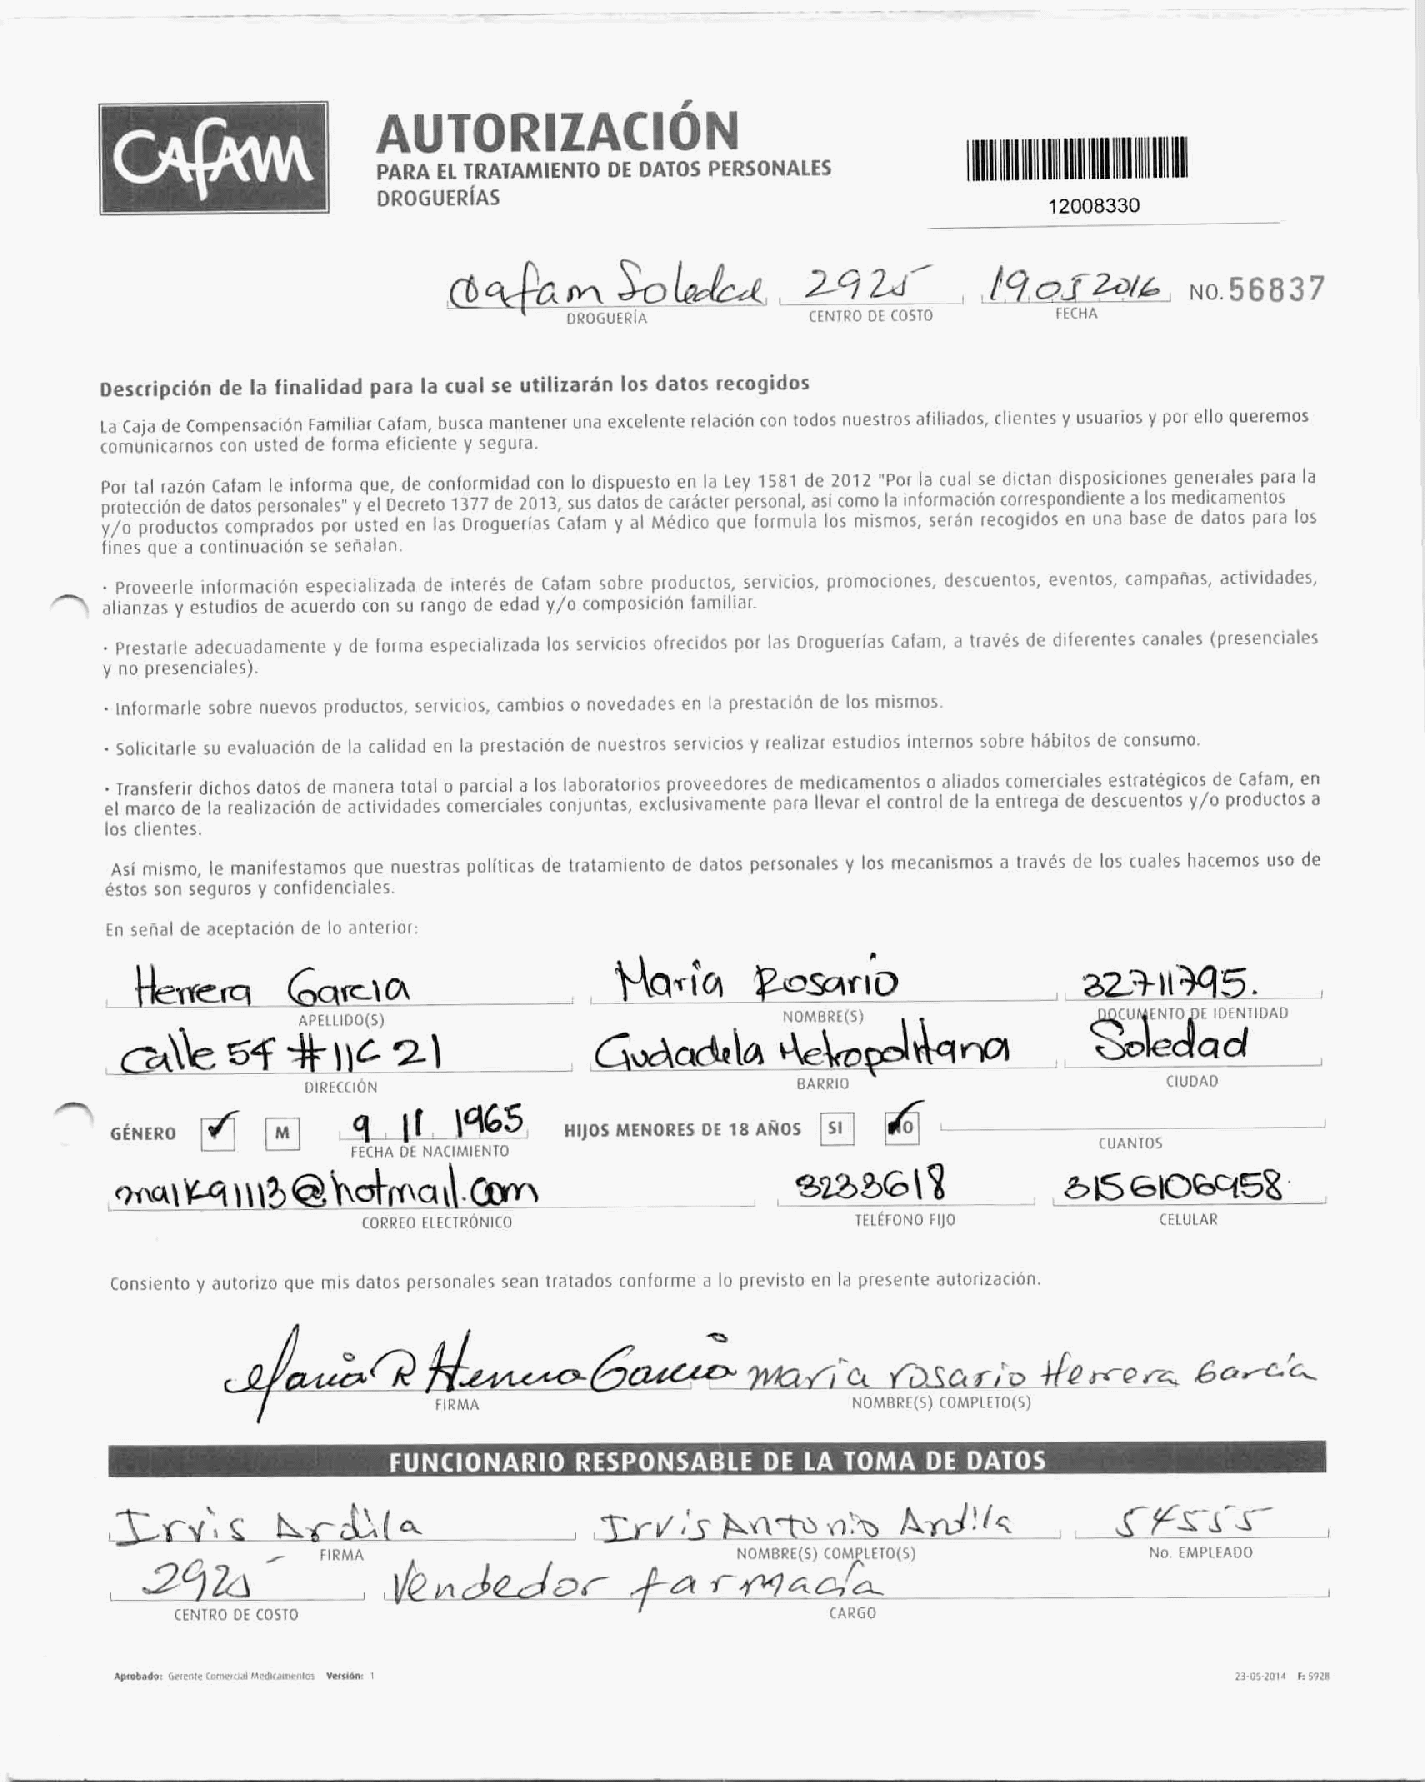 CAFAM
AUTORIZACIÓN
PARA EL TRATAMIENTO DE DATOS PERSONALES
DROGUERÍAS
12008330
Cafam Soledad 2925 19 05 2016 NO. 56837
DROGUERÍA CENTRO DE COSTO FECHA
Descripción de la finalidad para la cual se utilizarán los datos recogidos
La Caja de Compensación Familiar Cafam, busca mantener una excelente relación con todos nuestros afiliados, clientes y usuarios y por ello queremos
comunicarnos con usted de forma eficiente y segura.
Por tal razón Cafam le informa que, de conformidad con lo dispuesto en la Ley 1581 de 2012 "Por la cual se dictan disposiciones generales para la
protección de datos personales" y el Decreto 1377 de 2013, sus datos de carácter personal, así como la información correspondiente a los medicamentos
y/o productos comprados por usted en las Droguerías Cafam y al Médico que formula los mismos, serán recogidos en una base de datos para los
fines que a continuación se señalan.
· Proveerle información especializada de interés de Cafam sobre productos, servicios, promociones, descuentos, eventos, campañas, actividades,
alianzas y estudios de acuerdo con su rango de edad y/o composición familiar.
· Prestarle adecuadamente y de forma especializada los servicios ofrecidos por las Droguerías Cafam, a través de diferentes canales (presenciales
y no presenciales).
· Informarle sobre nuevos productos, servicios, cambios o novedades en la prestación de los mismos.
· Solicitarle su evaluación de la calidad en la prestación de nuestros servicios y realizar estudios internos sobre hábitos de consumo.
· Transferir dichos datos de manera total o parcial a los laboratorios proveedores de medicamentos o aliados comerciales estratégicos de Cafam, en
el marco de la realización de actividades comerciales conjuntas, exclusivamente para llevar el control de la entrega de descuentos y/o productos a
los clientes.
Así mismo, le manifestamos que nuestras políticas de tratamiento de datos personales y los mecanismos a través de los cuales hacemos uso de
éstos son seguros y confidenciales.
En señal de aceptación de lo anterior:
Herrera Garcia Maria Rosario 32711795.
APELLIDO(S) NOMBRE(S) DOCUMENTO DE IDENTIDAD
Calle 54 #11C 21 Ciudadela Metropolitana Soledad
DIRECCIÓN BARRIO CIUDAD
GÉNERO M 9 11 1965 HIJOS MENORES DE 18 AÑOS SI NO
FECHA DE NACIMIENTO CUANTOS
maika1113@hotmail.com 3233618 3156106958
CORREO ELECTRÓNICO TELÉFONO FIJO CELULAR
Consiento y autorizo que mis datos personales sean tratados conforme a lo previsto en la presente autorización.
Maria R Herrera Garcia maria rosario Herrera Garcia
FIRMA NOMBRE(S) COMPLETO(S)
FUNCIONARIO RESPONSABLE DE LA TOMA DE DATOS
Irvis Ardila Irvis Antonio Ardila 54555
FIRMA NOMBRE(S) COMPLETO(S) No. EMPLEADO
2925 Vendedor farmacia
CENTRO DE COSTO CARGO
Aprobado: Gerente Comercial Medicamentos Versión: 1 23-05-2014 F: 5928